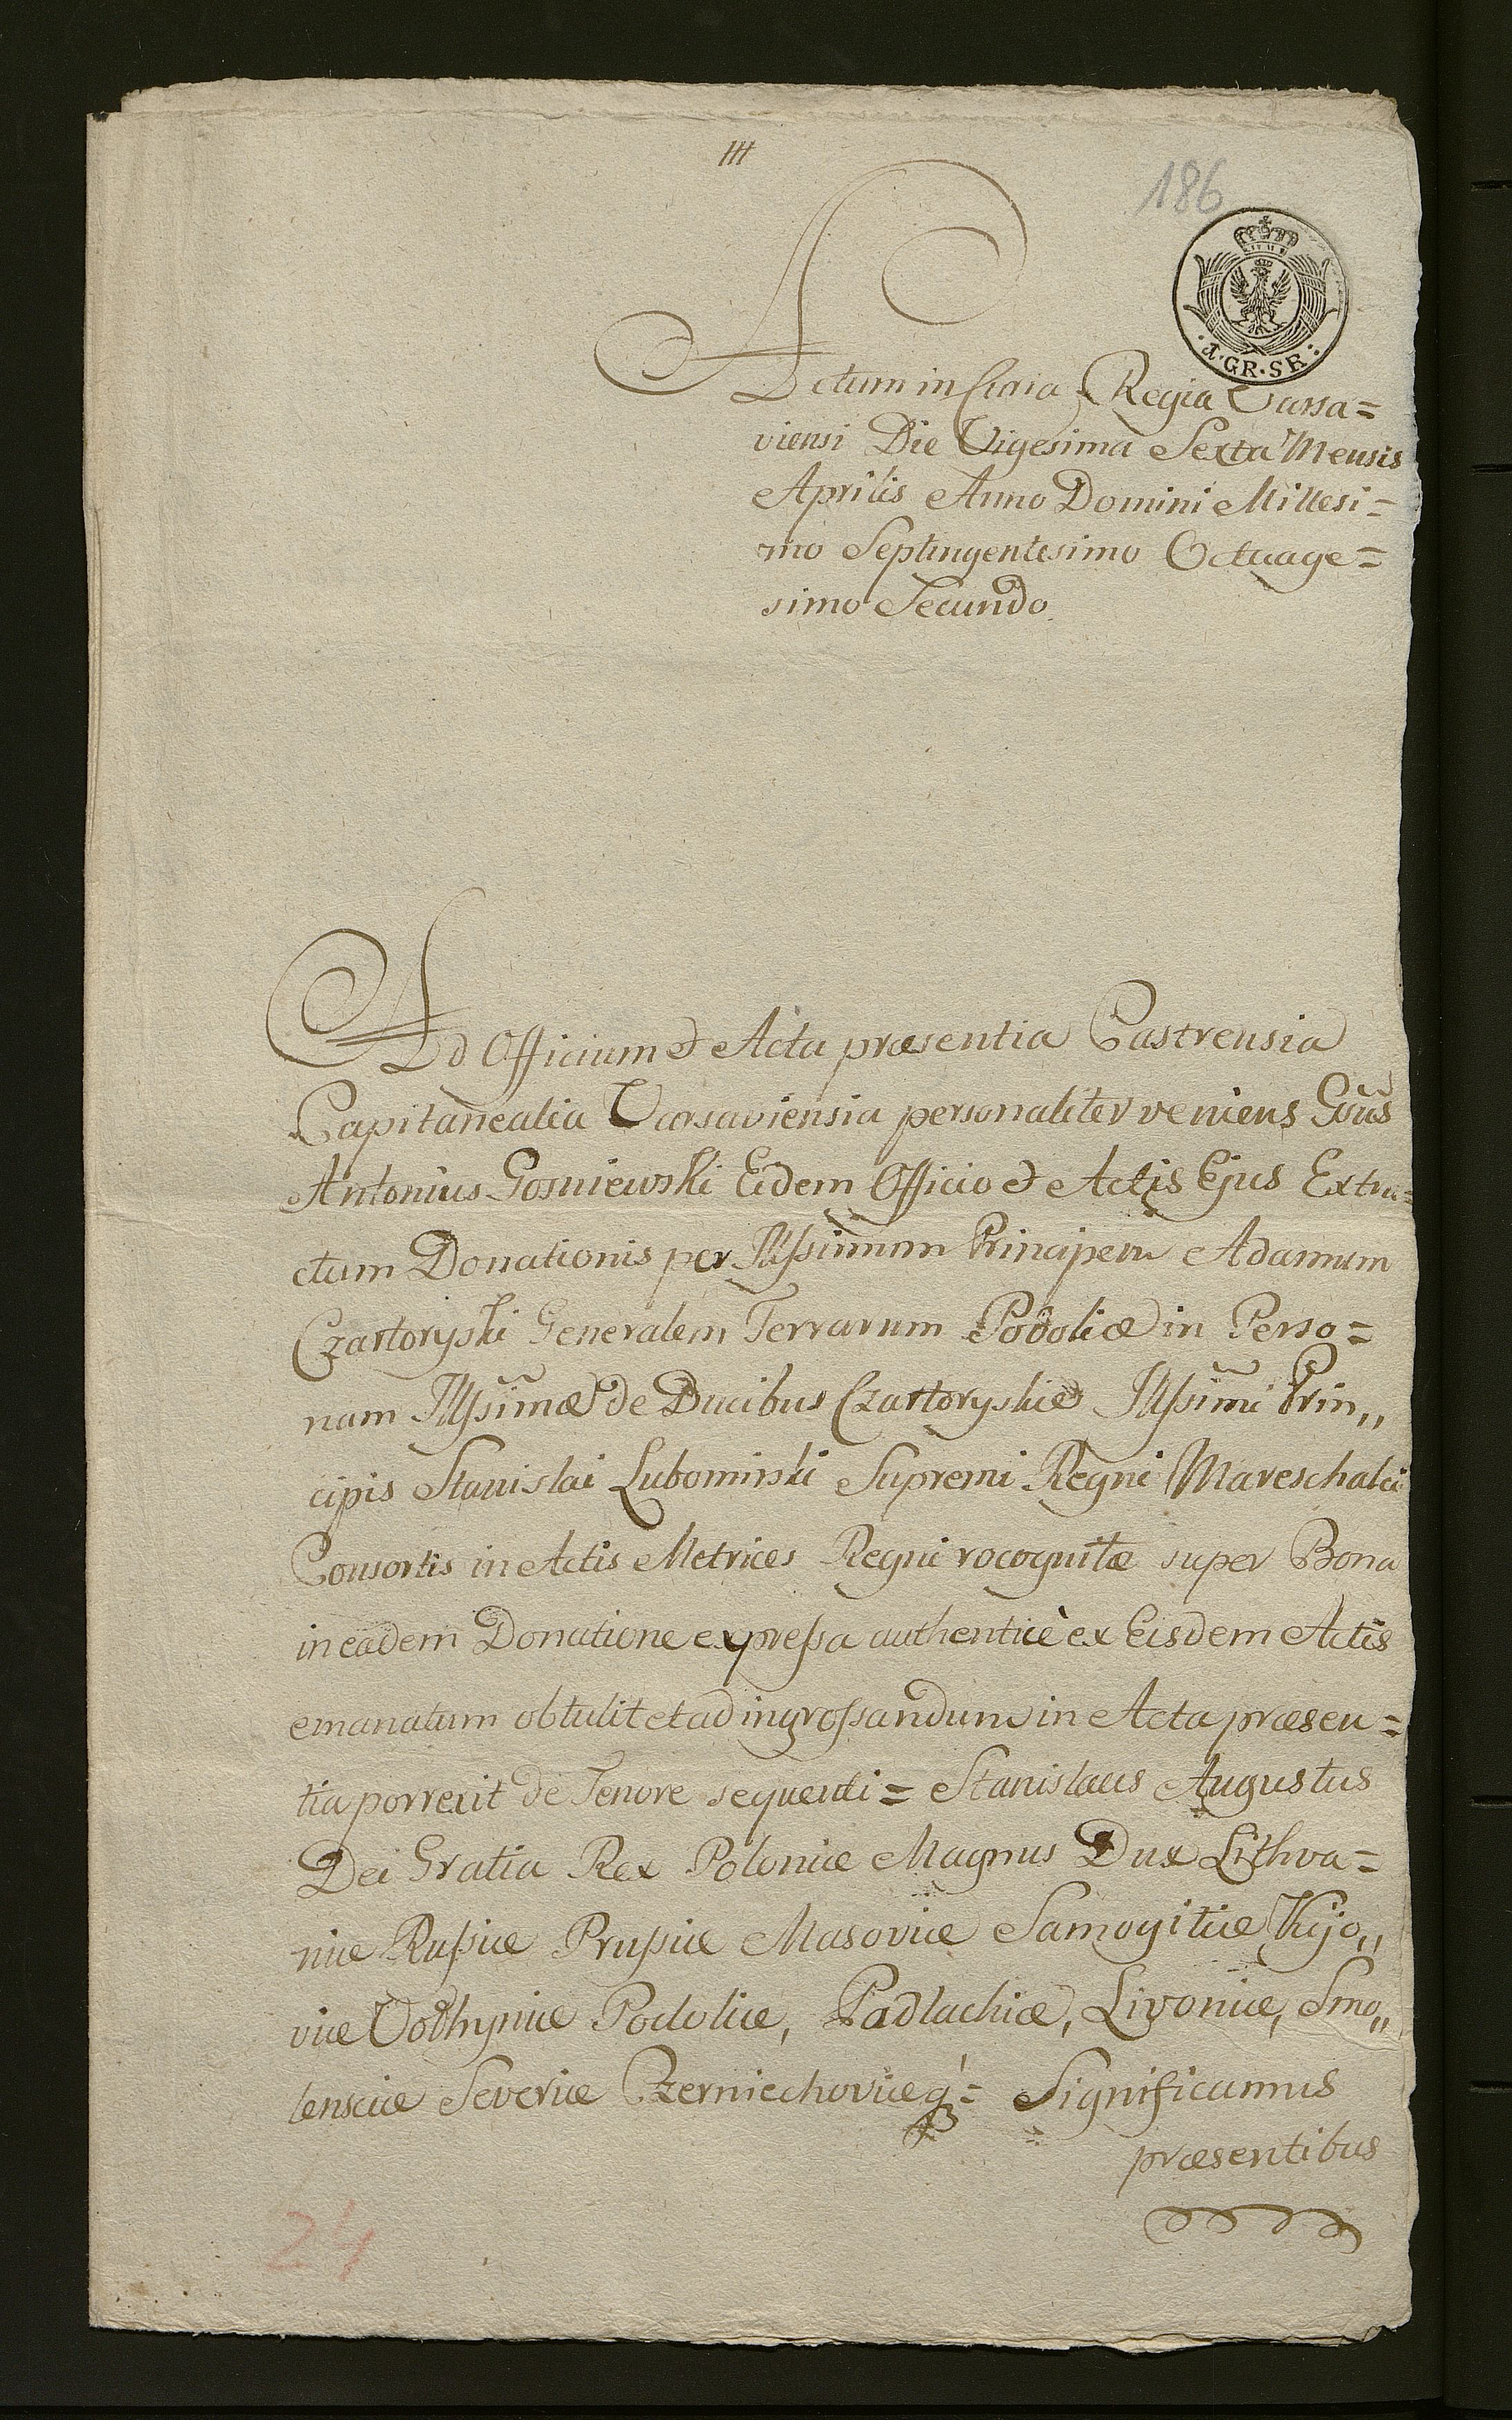 III
186
·4·GR·SR:
Actum in Curia Regia Varsa=
viensi Die Vigesima Sexta Mensis
Aprilis Anno Domini Millesi=
mo Septingentesimo Octuage=
simo Secundo
Ad Officium et Acta præsentia Castrensia
Capitanealia Varsaviensia personaliter veniens Gsūs
Antonius Gosniewski Eidem Officio et Actis Ejus Extra=
ctum Donationis per Illssimum Principem Adamum
Czartoryski Generalem Terrarum Podoliæ in Perso=
nam Illssimæ de Ducibus Czartoryskie Illssimi Prin„
cipis Stanislai Lubomirski Supremi Regni Mareschalci
Consortis in Actis Metrices Regni rocognitæ super Bona
in eadem Donatione expressa authenticè ex Eisdem Actis
emanatum obtulit et ad ingrossandum in Acta præsen=
tia porrexit de Tenore sequenti = Stanislaus Augustus
Dei Gratia Rex Poloniæ Magnus Dux Lithva=
niæ Russiæ Prussiæ Masoviæ Samogitiæ Kijo„
viæ Volhyniæ Podoliæ, Podlachiæ, Livoniæ, Smo„
lensciæ Severiæ Czerniechoviæq́ = Significamus
præsentibus
24